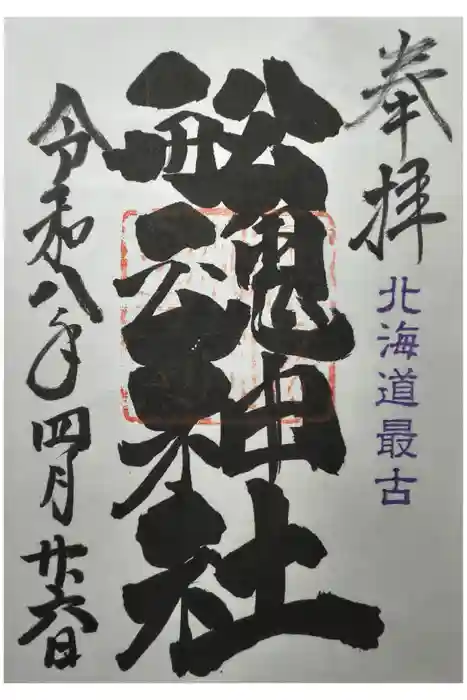 奉拝
北海道最古
船魂神社
令和八年四月廿六日